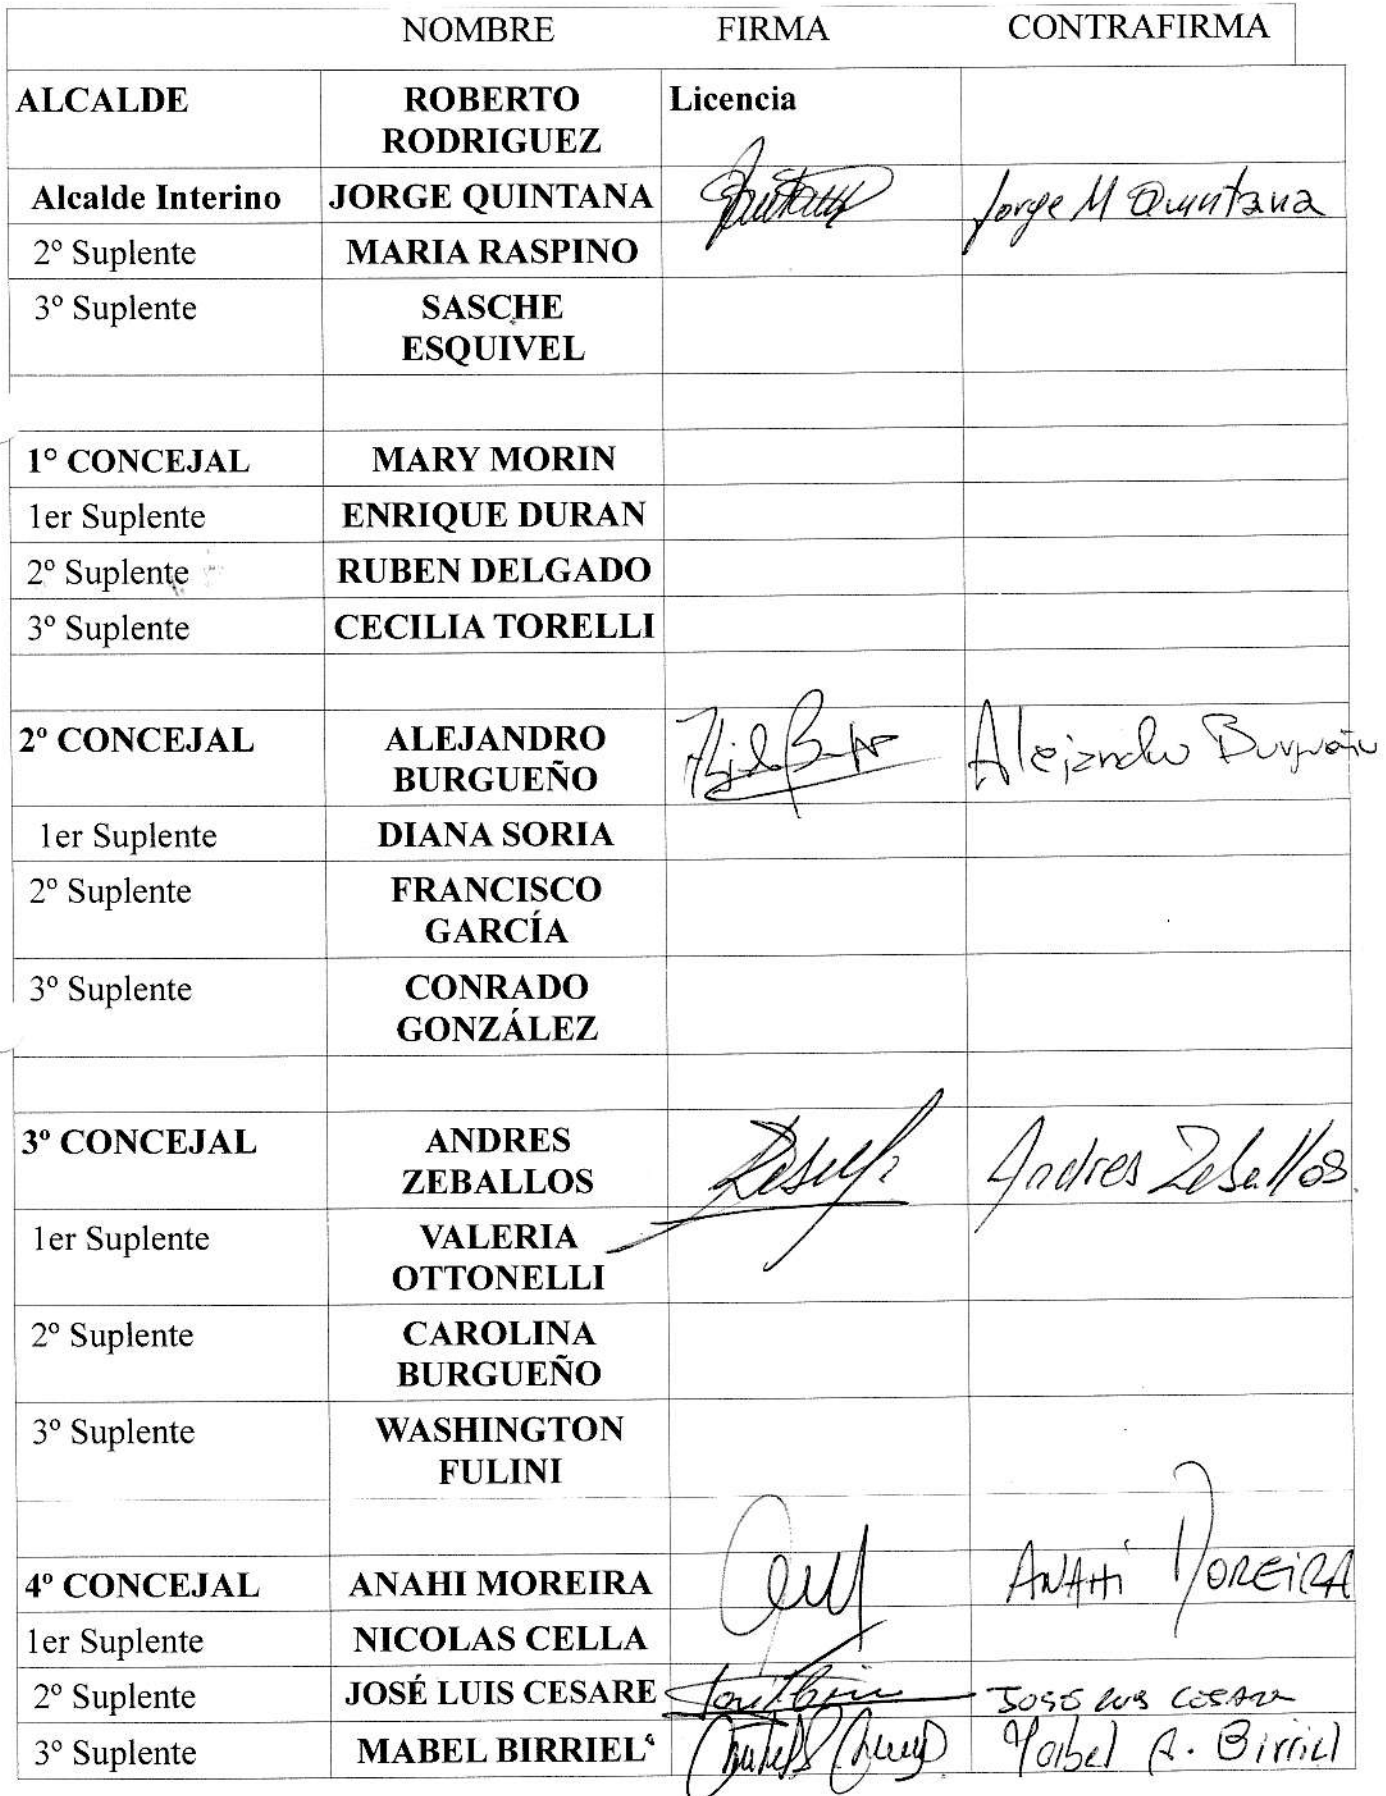 NOMBRE FIRMA CONTRAFIRMA
ALCALDE ROBERTO Licencia
RODRIGUEZ
Alcalde Interino JORGE QUINTANA Jorge M Quintana
2º Suplente MARIA RASPINO
3º Suplente SASCHE
ESQUIVEL
1° CONCEJAL MARY MORIN
1er Suplente ENRIQUE DURAN
2º Suplente RUBEN DELGADO
3º Suplente CECILIA TORELLI
2º CONCEJAL ALEJANDRO Alejandro Burgueño
BURGUEÑO
1er Suplente DIANA SORIA
2º Suplente FRANCISCO
GARCÍA
3º Suplente CONRADO
GONZÁLEZ
3º CONCEJAL ANDRES Andres Zeballos
ZEBALLOS
1er Suplente VALERIA
OTTONELLI
2º Suplente CAROLINA
BURGUEÑO
3º Suplente WASHINGTON
FULINI
4º CONCEJAL ANAHI MOREIRA ANAHí MOREiRA
1er Suplente NICOLAS CELLA
2º Suplente JOSÉ LUIS CESARE JOSE LUIS CESARE
3º Suplente MABEL BIRRIEL Mabel A. Birriel